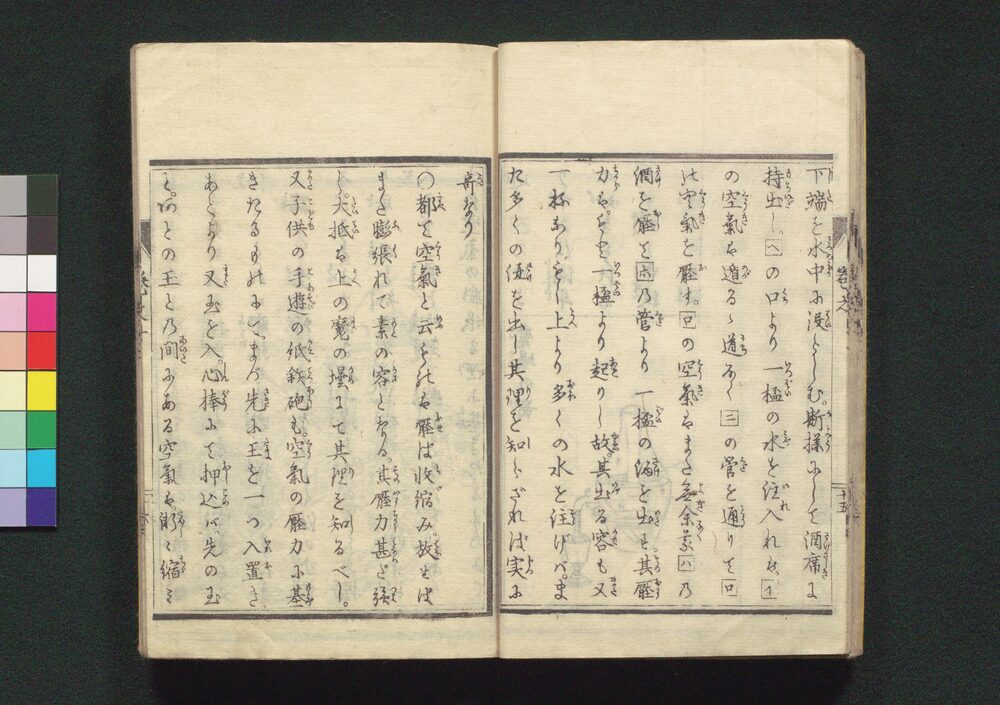 下端を水中に没せしむ。斯様にして酒席に
持出し。ヘの口より一榼の水を注入れば。イ
の空氣は遁るゝ道なく三の管を通りてロ
の空氣を壓す。ロの空氣もまた無余義ハの
酒を壓てホの管より一榼の酒を出す。其壓
力もと一榼より起りし故。其出る容も又
一杯なり。もし上より多くの水を注げバ。ま
た多くの酒を出し其理を知らざれば実に
奇なり
〇都て空氣と云ものは壓ば收縮み。放せば
また膨張れて素の容となる。其壓力甚だ強
し。大抵は上の竜の壜にて其理を知るべし。
又子供の手遊の紙鉄砲も空氣の壓力に基
きたるものにて。まづ先に玉を一つ入置き。
あとより又玉を入。心棒にて押込バ。先の玉
と。あとの玉との間にある空氣は。漸々縮ミ
十五